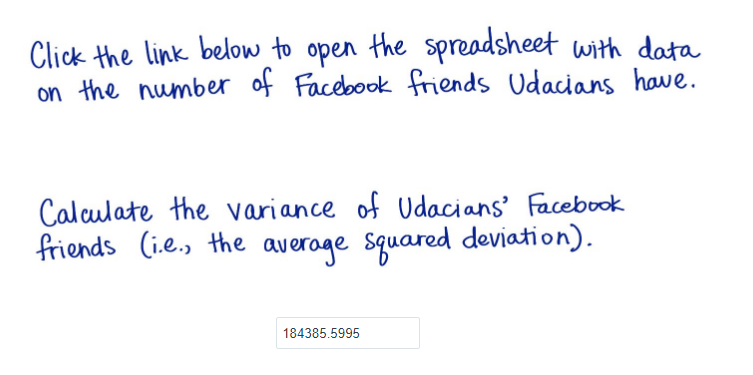 Click the link below to open the spreadsheet with data
on the number of Facebook friends Udacians have.
Calculate the variance of Udacians' Facebook
friends (i.e., the average squared deviation).
184385.5995